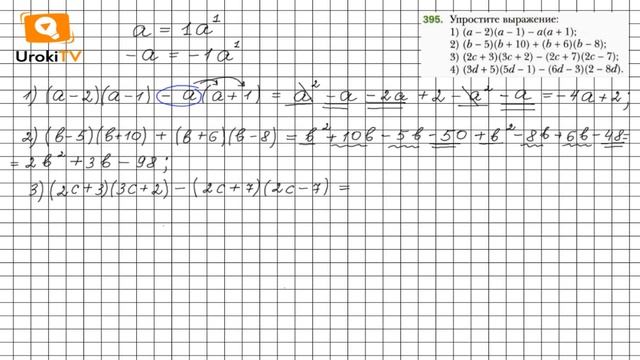 UrokiTV
a = 1a¹
-a = -1a¹
395. Упростите выражение:
1) (a − 2)(a − 1) − a(a + 1);
2) (b − 5)(b + 10) + (b + 6)(b − 8);
3) (2c + 3)(3c + 2) − (2c + 7)(2c − 7);
4) (3d + 5)(5d − 1) − (6d − 3)(2 − 8d).
1) (a−2)(a−1) − a(a+1) = a² − a − 2a + 2 − a² − a = −4a + 2;
2) (в−5)(в+10) + (в+6)(в−8) = в² + 10в − 5в − 50 + в² − 8в + 6в − 48 =
= 2в² + 3в − 98;
3) (2c+3)(3c+2) − (2c+7)(2c−7) =